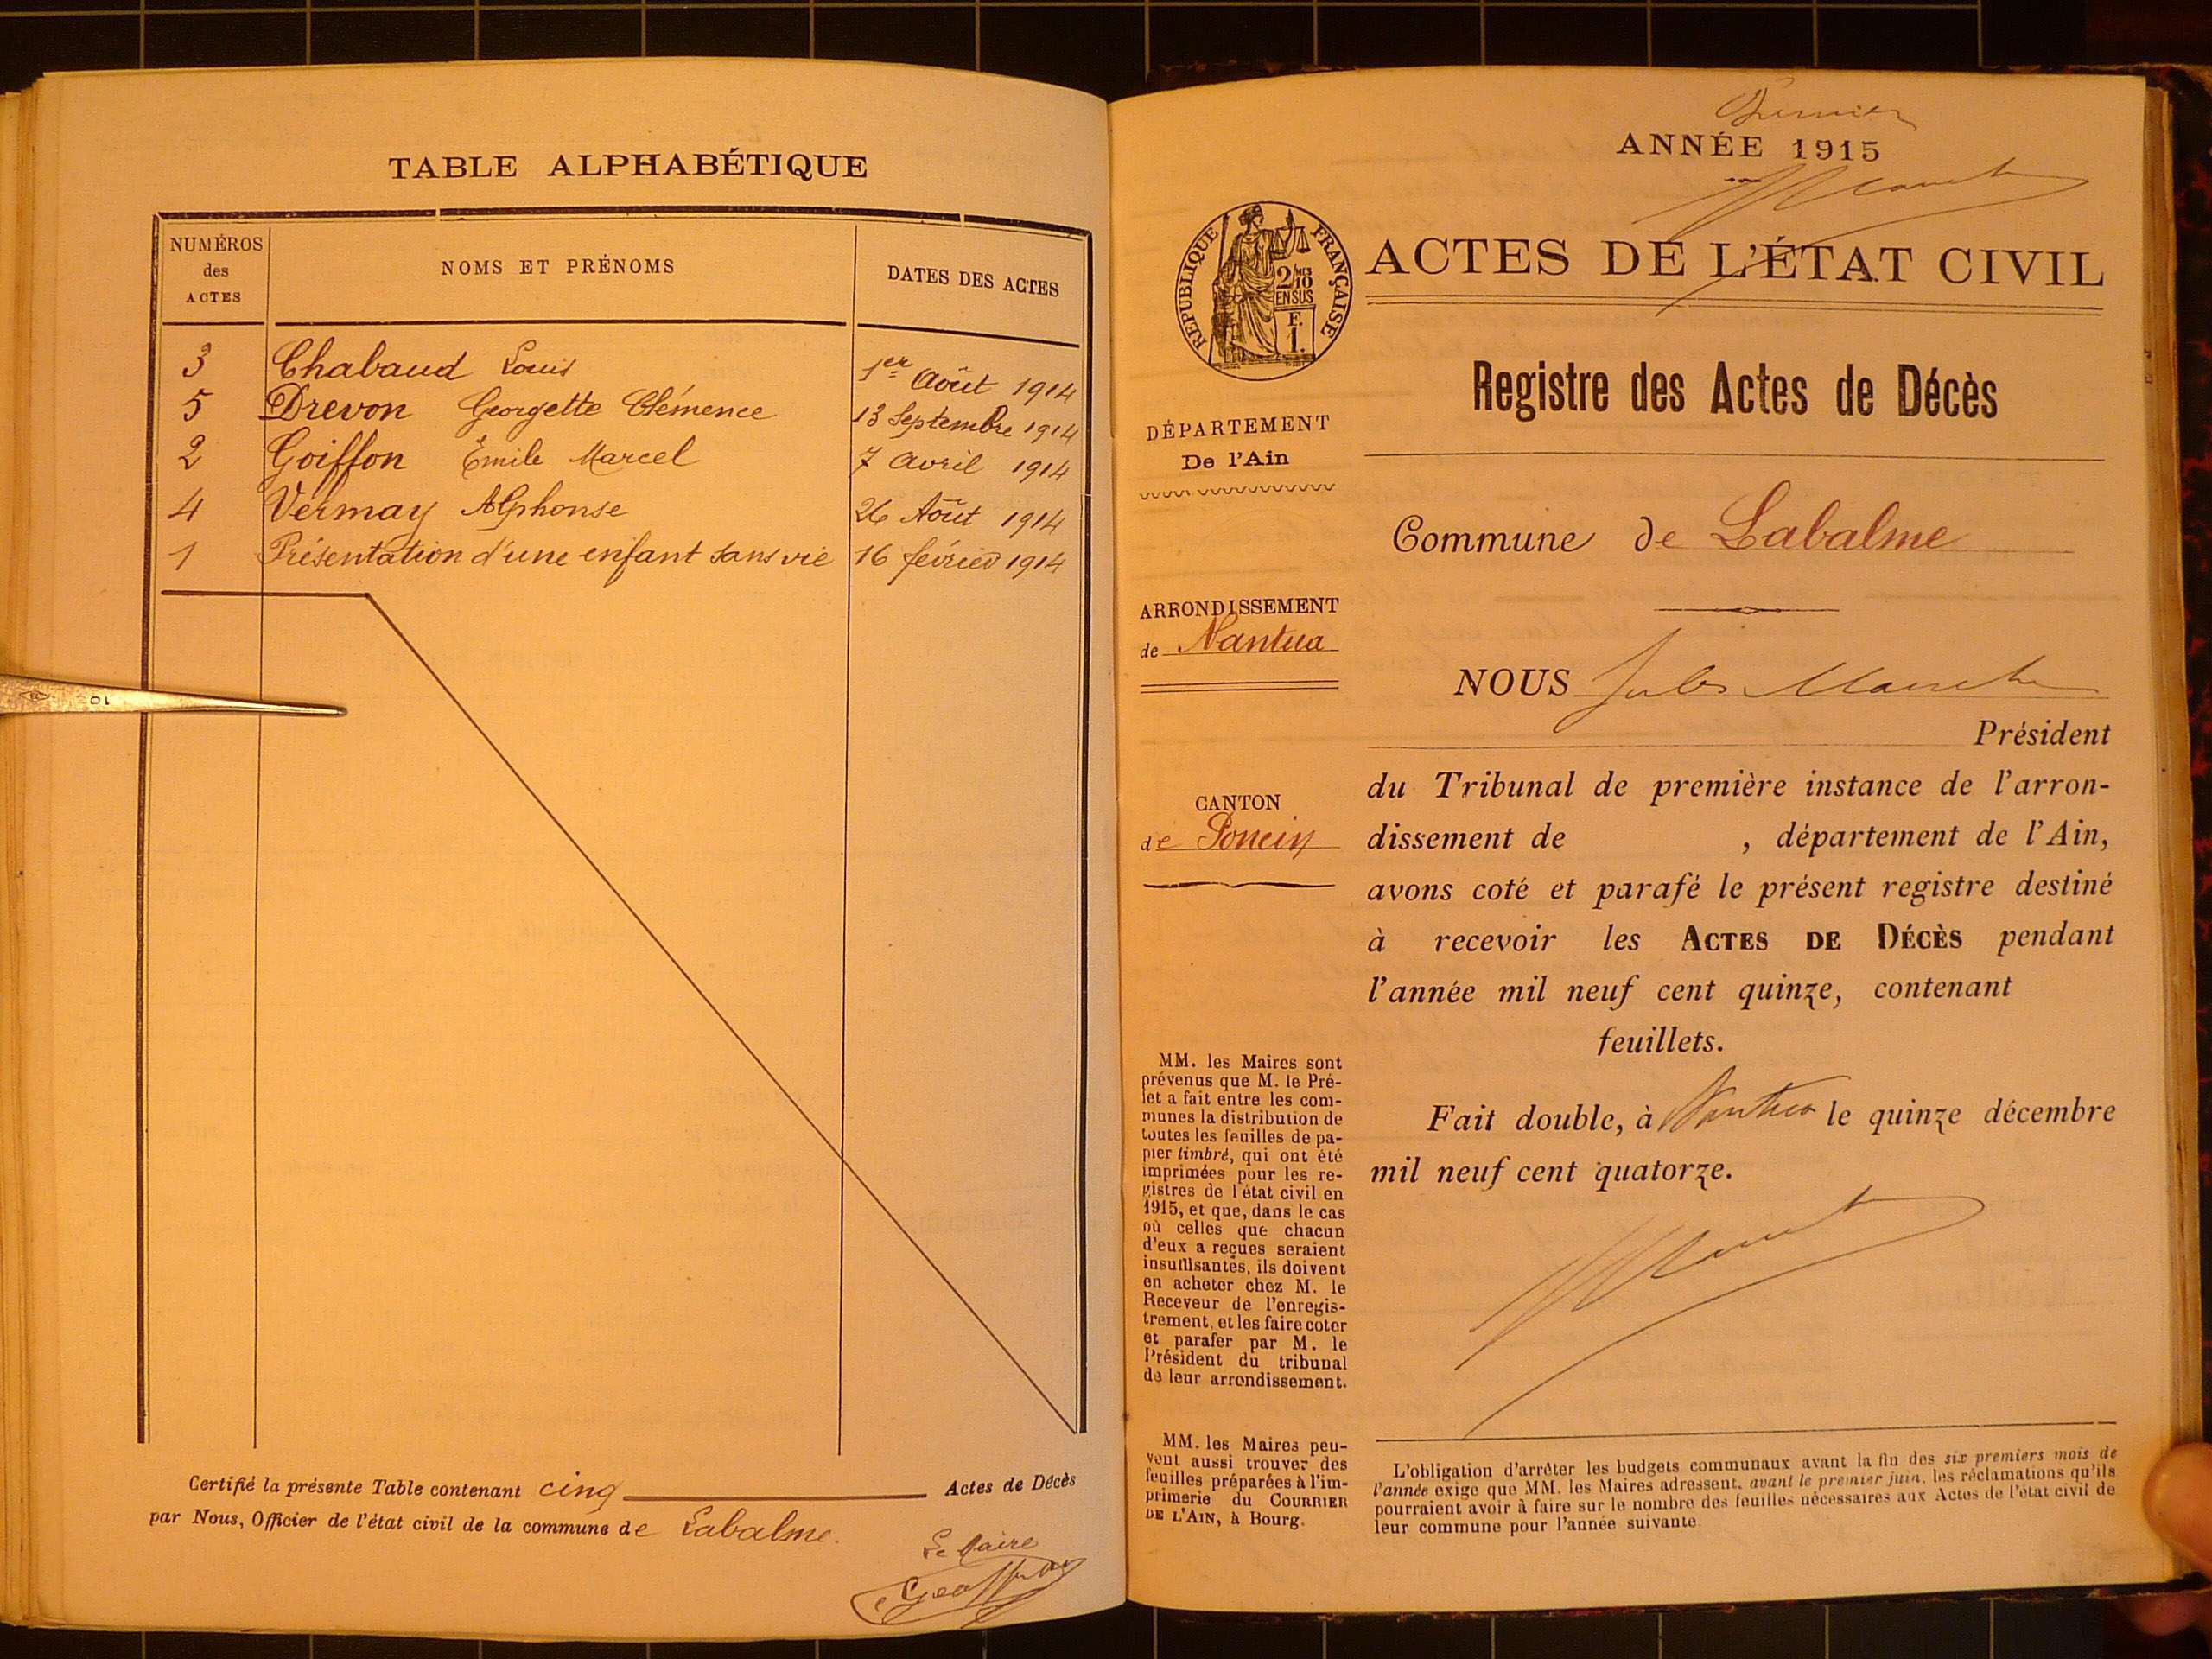 TABLE ALPHABÉTIQUE
NUMÉROS des ACTES
NOMS ET PRÉNOMS
DATES DES ACTES
3 Chabaud Louis 1er Août 1914
5 Drevon Georgette Clémence 13 Septembre 1914
2 Goiffon Emile Marcel 7 avril 1914
4 Vermay Alphonse 26 Août 1914
1 Présentation d'une enfant sans vie 16 février 1914
Certifié la présente Table contenant cinq Actes de Décès
par Nous, Officier de l'état civil de la commune de Labalme.
Le Maire
Premier
ANNÉE 1915
RÉPUBLIQUE FRANÇAISE
2/10
EN SUS
F.
1.
ACTES DE L'ÉTAT CIVIL
Registre des Actes de Décès
DÉPARTEMENT
De l'Ain
Commune de Labalme
ARRONDISSEMENT
de Nantua
CANTON
de Poncin
NOUS Jules
Président
du Tribunal de première instance de l'arron-
dissement de , département de l'Ain,
avons coté et parafé le présent registre destiné
à recevoir les ACTES DE DÉCÈS pendant
l'année mil neuf cent quinze, contenant
feuillets.
Fait double, à Nantua le quinze décembre
mil neuf cent quatorze.
MM. les Maires sont
prévenus que M. le Pré-
fet a fait entre les com-
munes la distribution de
toutes les feuilles de pa-
pier timbré, qui ont été
imprimées pour les re-
gistres de l'état civil en
1915, et que, dans le cas
où celles que chacun
d'eux a reçues seraient
insuffisantes, ils doivent
en acheter chez M. le
Receveur de l'enregis-
trement, et les faire coter
et parafer par M. le
Président du tribunal
de leur arrondissement.
MM. les Maires peu-
vent aussi trouver des
feuilles préparées à l'im-
primerie du COURRIER
DE L'AIN, à Bourg.
L'obligation d'arrêter les budgets communaux avant la fin des six premiers mois de
l'année exige que MM. les Maires adressent, avant le premier juin, les réclamations qu'ils
pourraient avoir à faire sur le nombre des feuilles nécessaires aux Actes de l'état civil de
leur commune pour l'année suivante